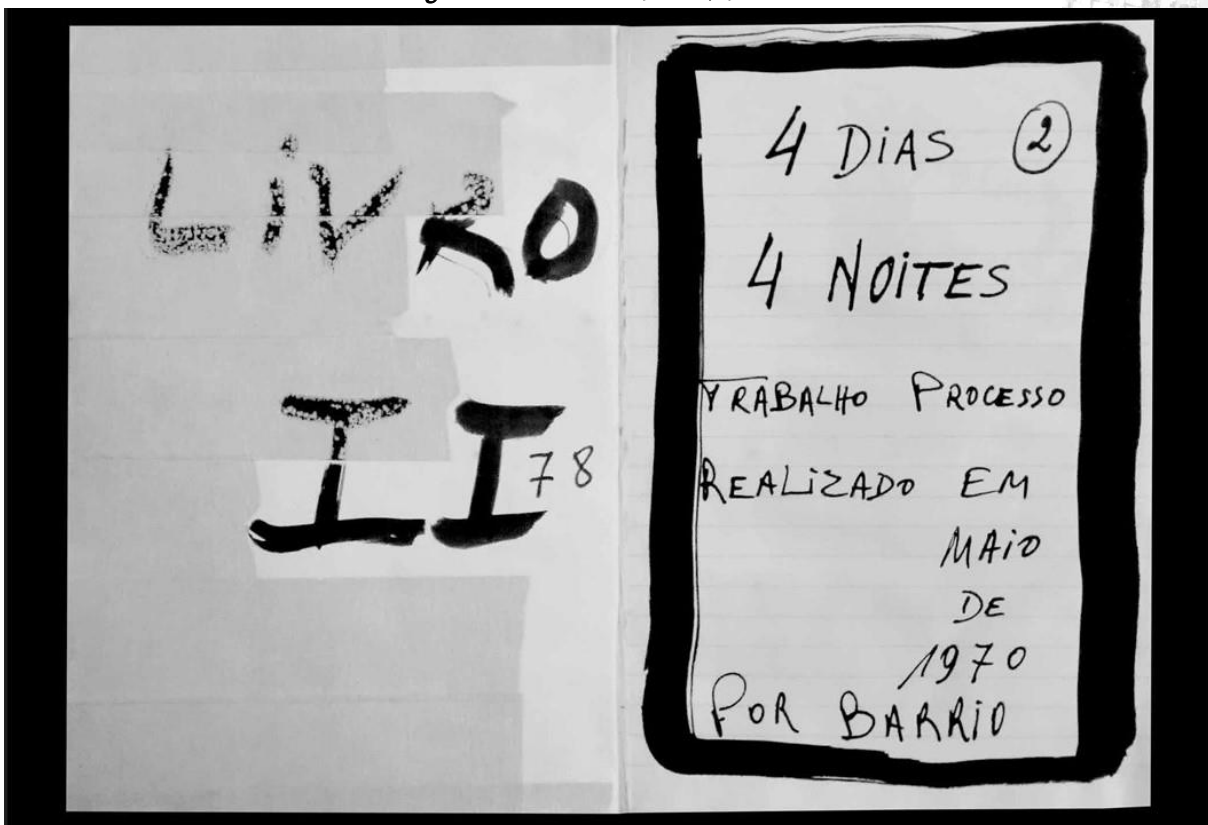 LiVRO
II
78
4 DiAS 2
4 NOiTES
TRABALHO PROCESSO
REALiZADO EM
MAiO
DE
1970
POR BARRiO